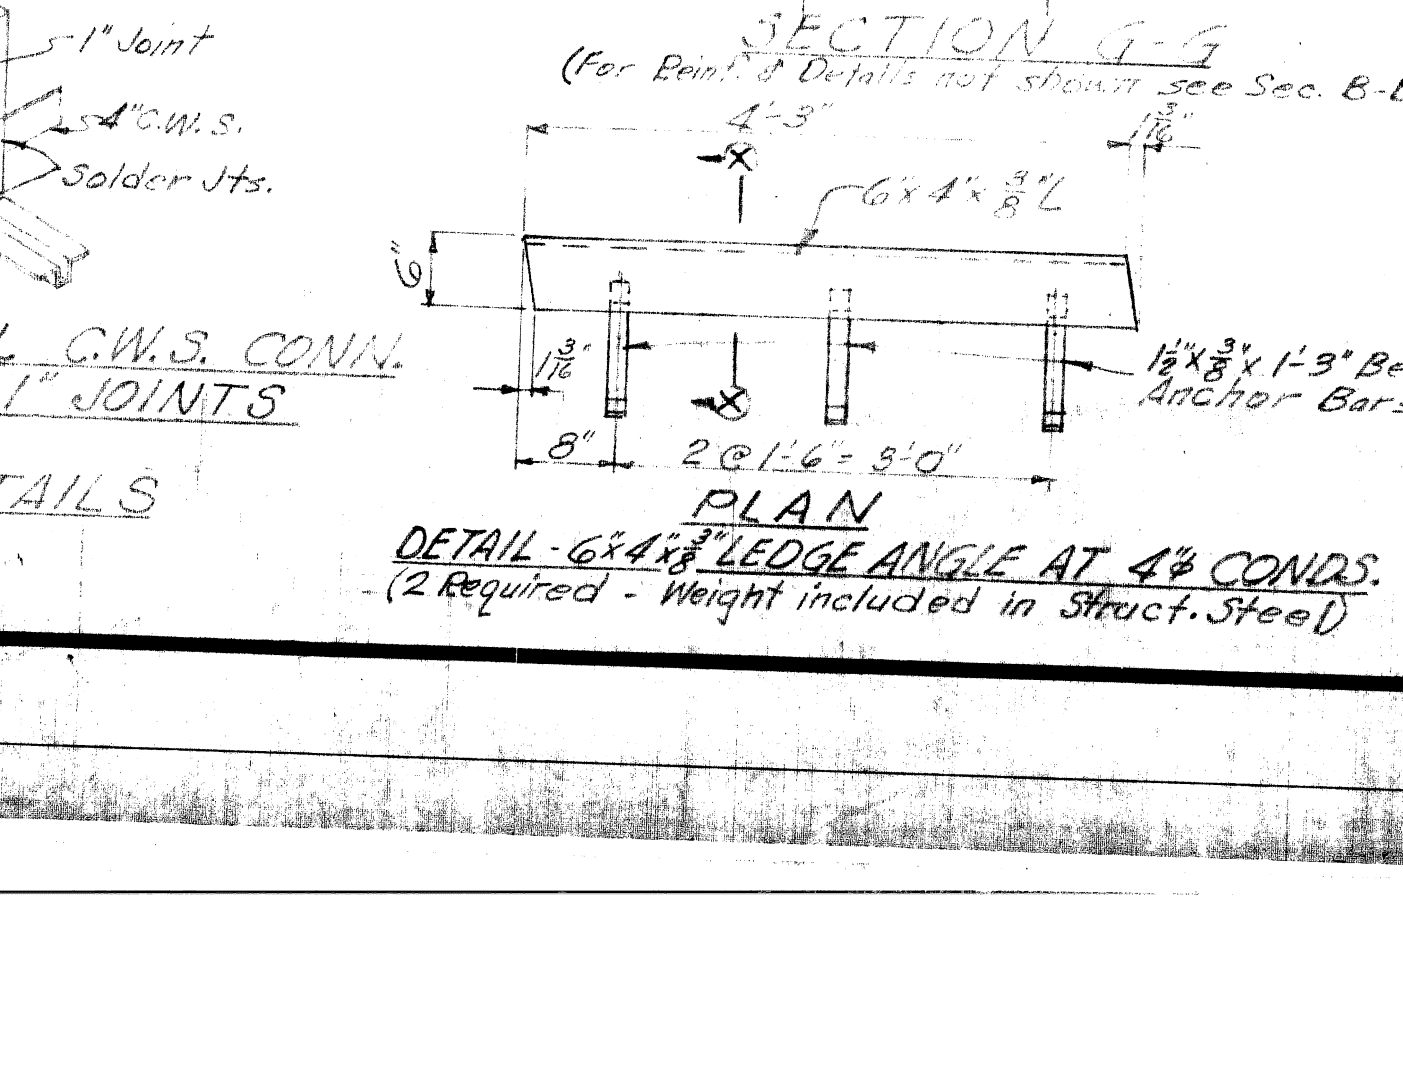 1" Joint
4" C.W.S.
Solder Jts.
C.W.S. CONN.
1" JOINTS
TAILS
SECTION G-G
(For Reinf. & Details not shown see Sec. B-
4'-3"
1 3/16"
X
6" x 4" x 3/8" L
6"
1 3/16"
1 1/2" x 3/8" x 1'-3" Be
Anchor Bars
X
8"
2 @ 1'-6" = 3'-0"
PLAN
DETAIL - 6" x 4" x 3/8" LEDGE ANGLE AT 4"⌀ CONDS.
(2 Required - Weight included in Struct. Steel)